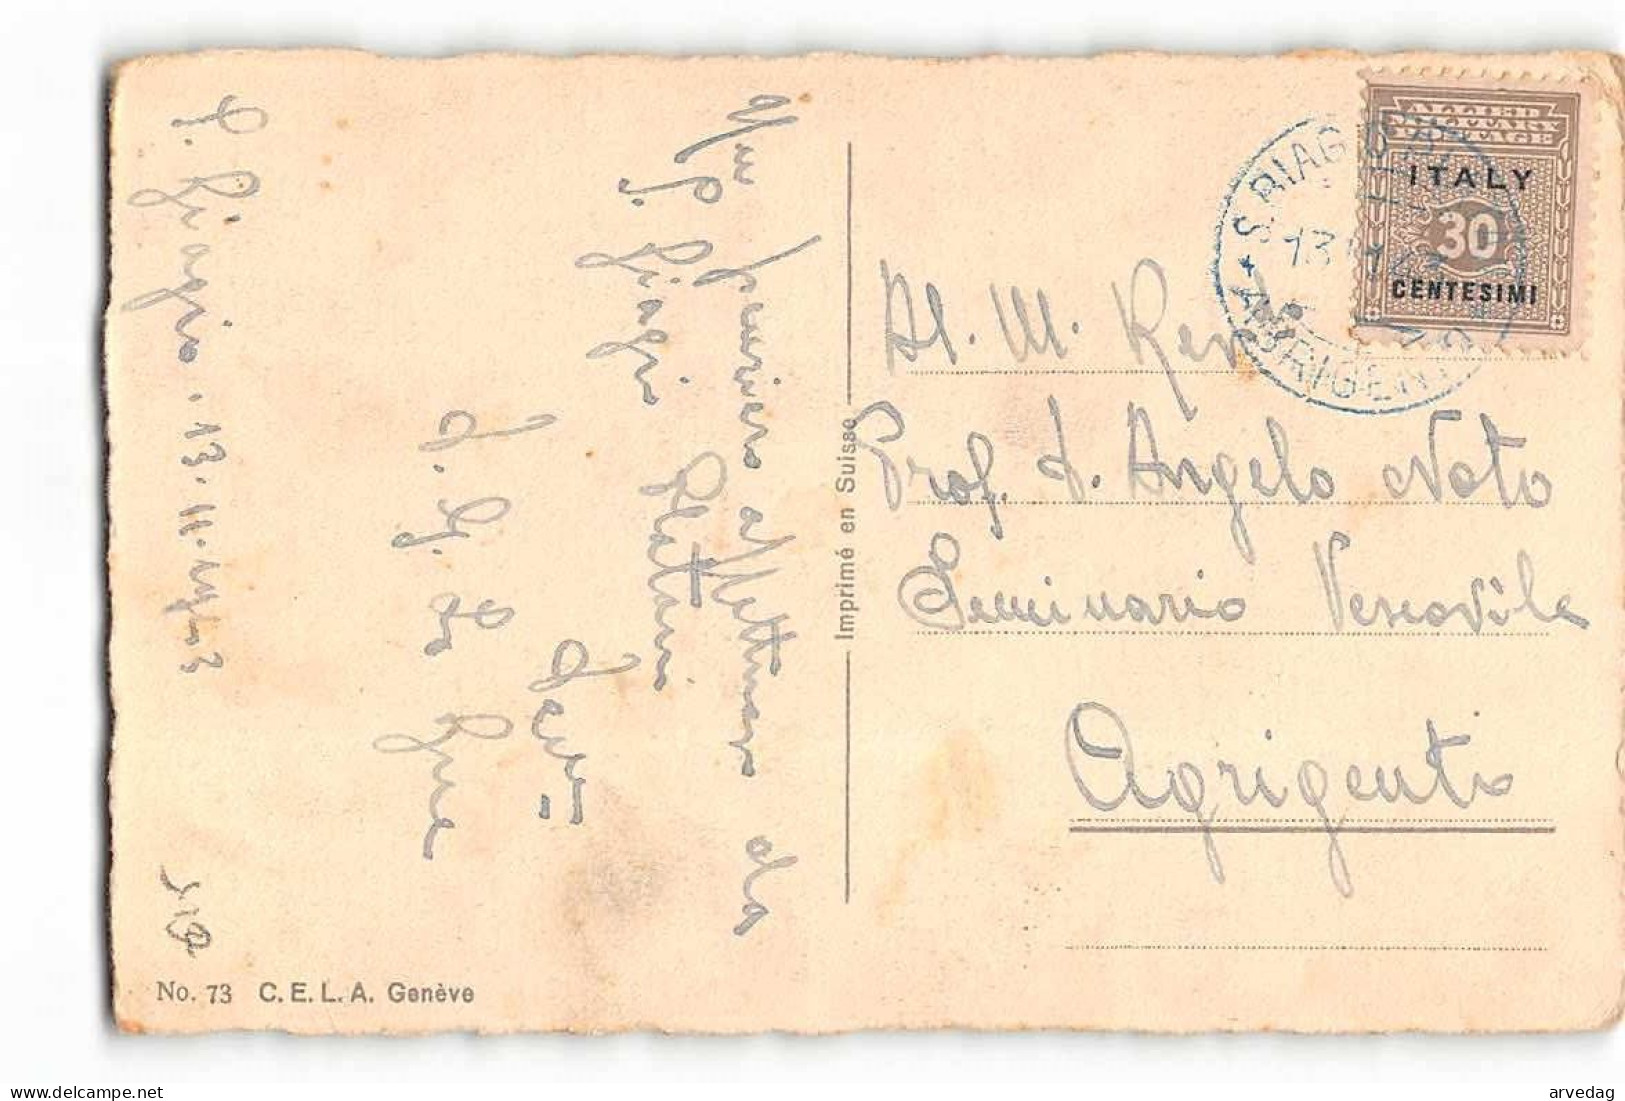 S. Biagio. 13.11.1943
Un pensiero affettuoso da
S. Biagio Platani
Dev.
ALLIED
MILITARY
POSTAGE
ITALY
30
CENTESIMI
S. BIAGIO
13 11 43
* AGRIGENTO
Al M. Rev
Prof. D. Angelo Noto
Seminario Vescovile
Agrigento
Imprimé en Suisse
No. 73 C.E.L.A. Genève
arvedag